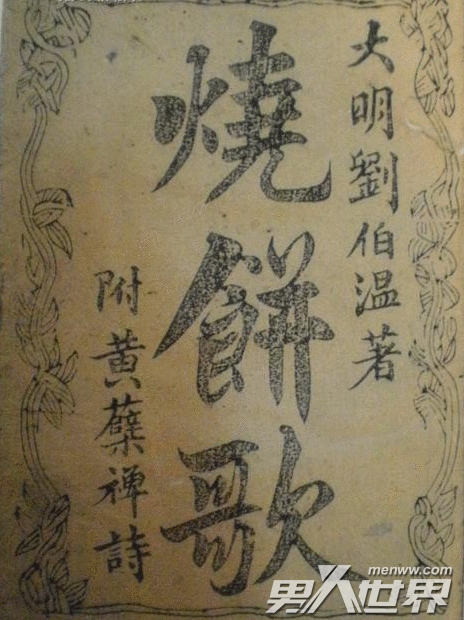 大明劉伯温著
燒餅歌
附黄蘗禅詩
menww.com
男人世界